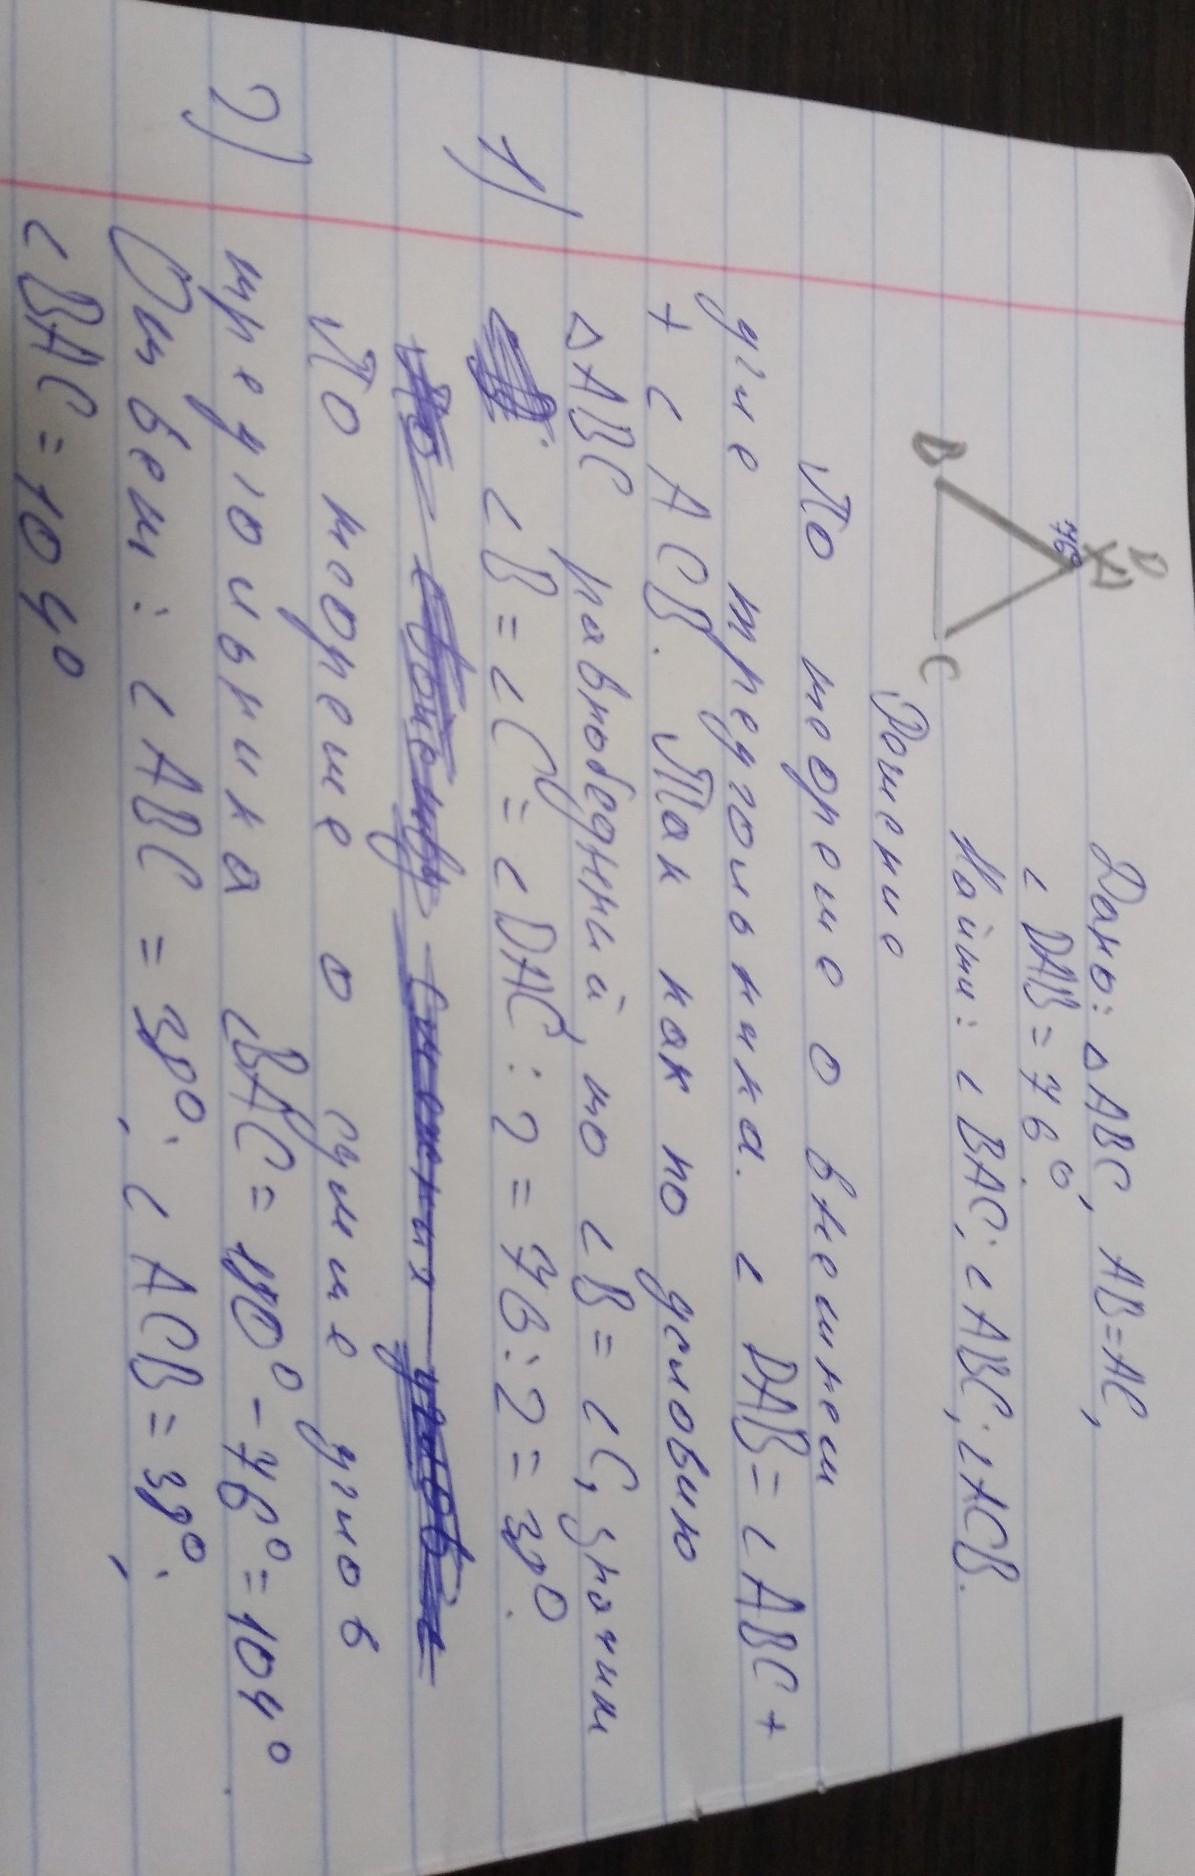 Дано: △ABC, AB=AC,
∠DAB=76°.
Найти: ∠BAC; ∠ABC; ∠ACB.
D
A
76°
B
C
Решение
По теореме о внешнем
угле треугольника. ∠DAB=∠ABC+
+∠ACB. Так как по условию
△ABC равнобедрний, то ∠B=∠C, значит
1) ∠B=∠C=∠DAC:2=76:2=38°.
По теореме о сумме углов
треугольника ∠BAC=180°-76°=104°.
2) Ответ: ∠ABC=38°; ∠ACB=38°;
∠BAC=104°